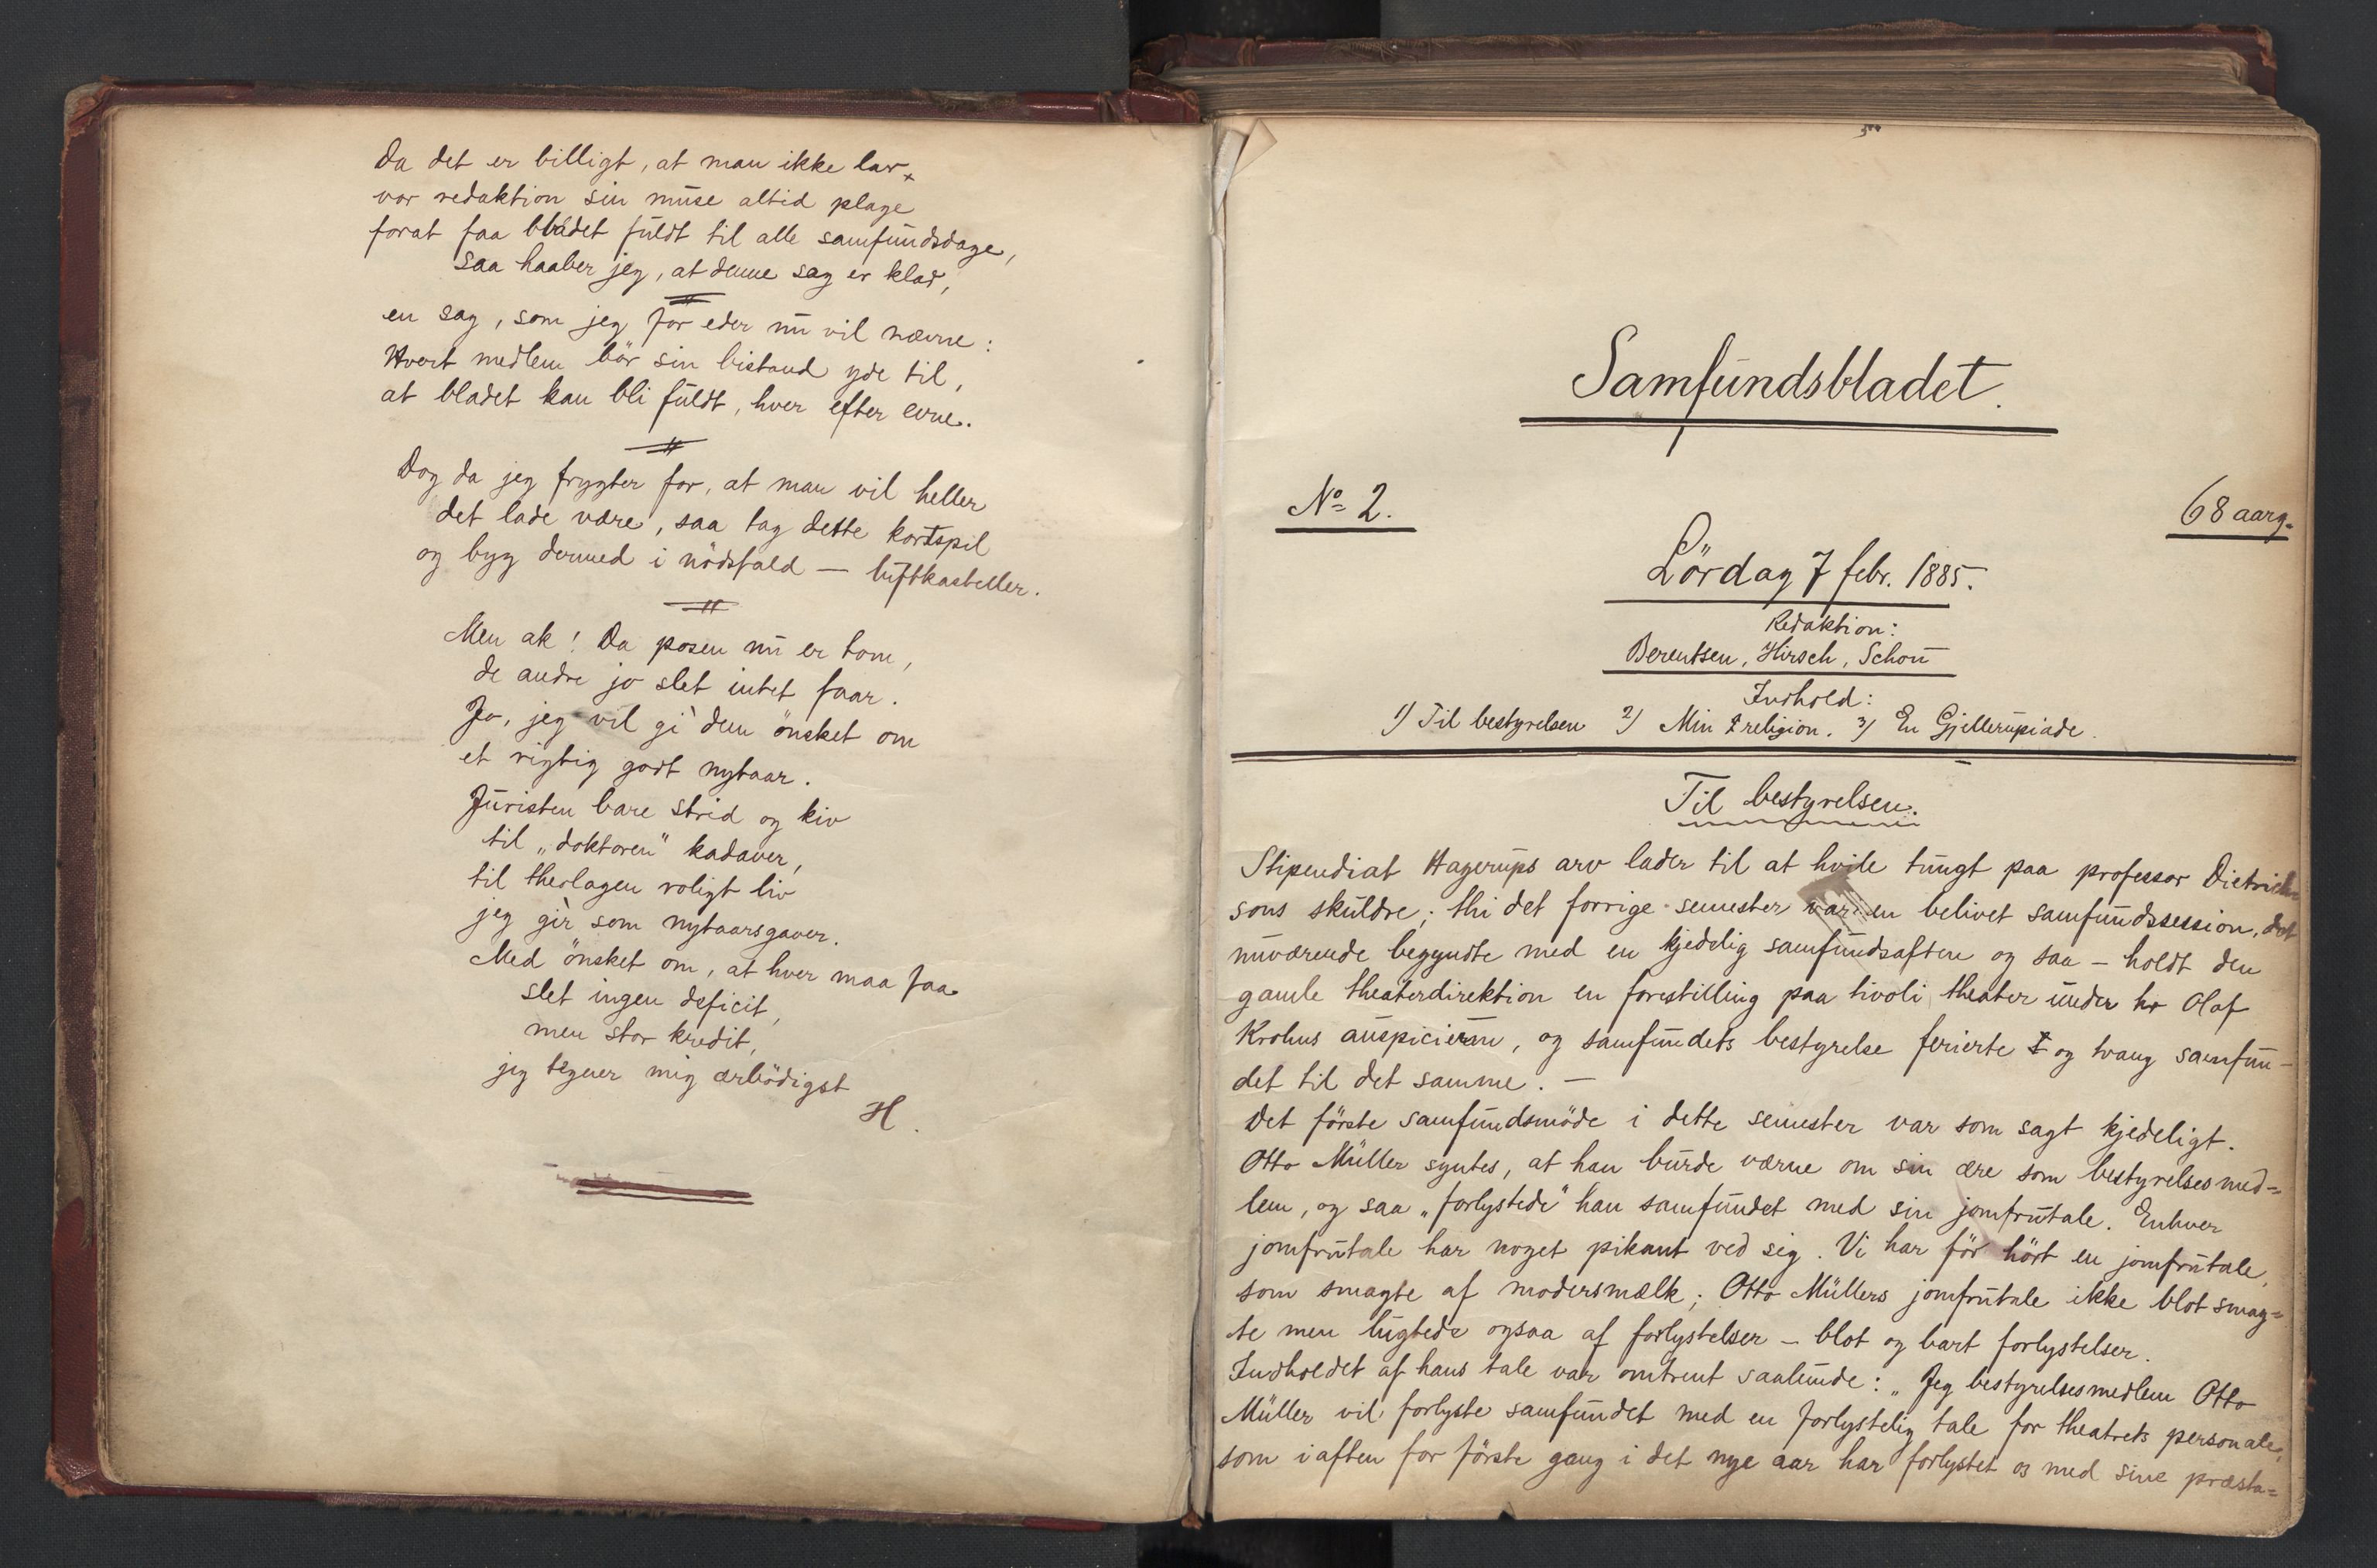 Da det er billigt, at man ikke lar
vor redaktion sin muse altid plage
forat faa bladet fuldt til alle samfundsdage,
saa haaber jeg, at denne sag er klar,
en sag, som jeg for eder nu vil nævne:
Hvert medlem bör sin bistand yde til,
at bladet kan bli fuldt, hver efter evne.
Dog da jeg frygter for, at man vil heller
det lade være, saa tag dette kortspil
og byg dermed i nödsfald — luftkasteller.
Men ak! Da posen nu er tom,
de andre jo slet intet faar.
Jo, jeg vil gi' dem önsket om
et rigtig godt nytaar.
Juristen bare strid og kiv
til „doktoren" kadaver,
til theologen roligt liv
jeg gi'r som nytaarsgaver.
Med önsket om, at hver maa faa
slet ingen deficit,
men stor kredit,
jeg tegner mig ærbödigst
H.
Samfundsbladet.
No 2.
68 aarg.
Lördag 7 febr. 1885.
Redaktion:
Berentsen, Hirsch, Schou
Indhold:
1) Til bestyrelsen 2) Min religion. 3) En Gjellerupiade.
Til bestyrelsen.
Stipendiat Hagerups arv lader til at hvile tungt paa professor Dietrich
sons skuldre; thi det forrige semester var en belivet samfundssession, det
nuværende begyndte med en kjedelig samfundsaften og saa — holdt den
gamle theaterdirektion en forestilling paa tivoli theater under hr Olaf
Krohns auspicier, og samfundets bestyrelse ferierte og tvang samfun-
det til det samme. —
Det förste samfundsmöde i dette semester var som sagt kjedeligt.
Otto Müller syntes, at han burde værne om sin ære som bestyrelsesmed=
lem, og saa „forlystede" han samfundet med sin jomfrutale. Enhver
jomfrutale har noget pikant ved sig. Vi har för hört en jomfrutale,
som smagte af modersmælk; Otto Müllers jomfrutale ikke blot smag=
te men lugtede ogsaa af forlystelser — blot og bart forlystelser.
Indholdet af hans tale var omtrent saalunde: „Jeg bestyrelsesmedlem Otto
Müller vil forlyste samfundet med en forlystelig tale for theatrets personale,
som iaften for förste gang i det nye aar har forlystet os med sine præsta=